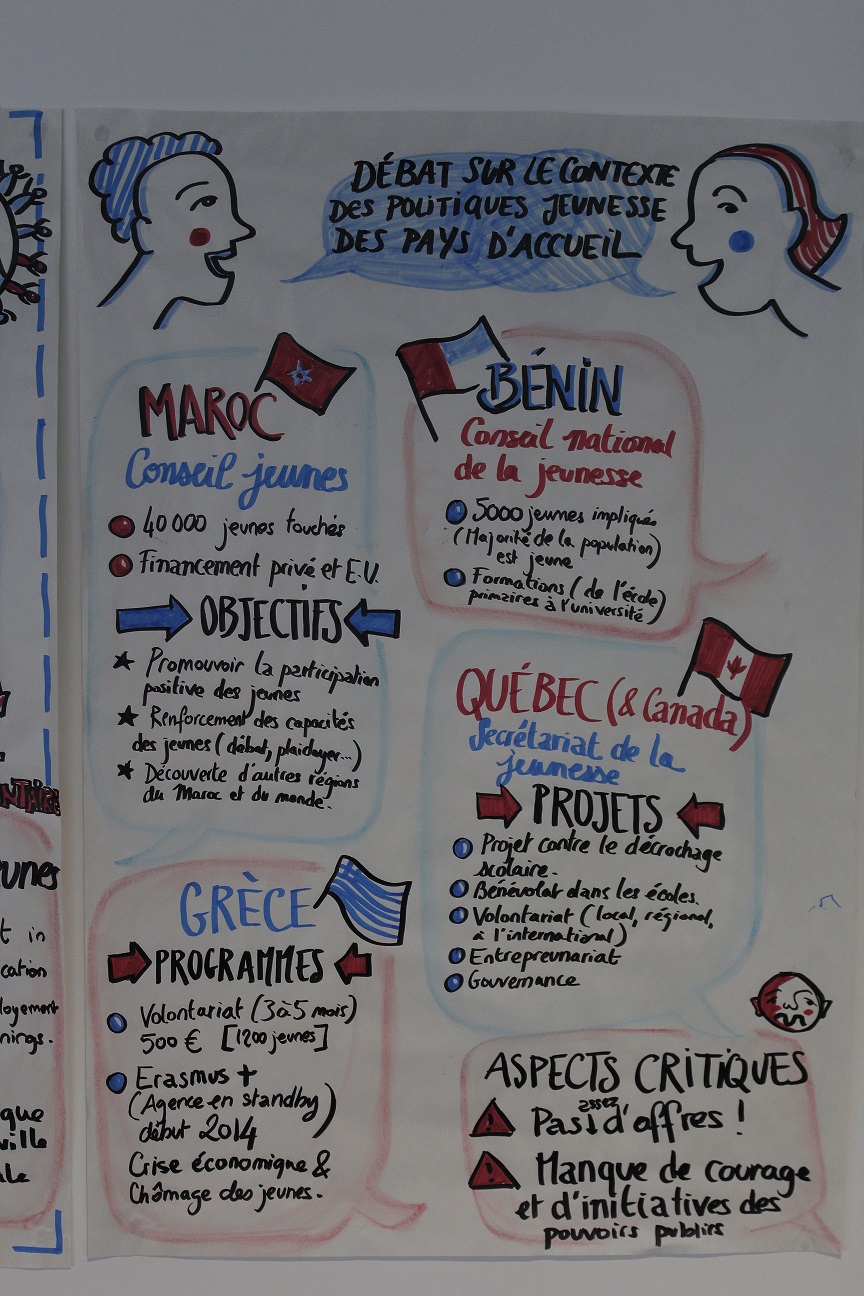 DÉBAT SUR LE CONTEXTE
DES POLITIQUES JEUNESSE
DES PAYS D'ACCUEIL
MAROC
Conseil jeunes
40 000 jeunes touchés
Financement privé et E.U.
OBJECTIFS
Promouvoir la participation
positive des jeunes
Renforcement des capacités
des jeunes (débat, plaidoyer...)
Découverte d'autres régions
du Maroc et du monde.
GRÈCE
PROGRAMMES
Volontariat (3 à 5 mois)
500 € [1200 jeunes]
Erasmus +
(Agence en standby)
début 2014
Crise économique &
Chômage des jeunes.
BÉNIN
Conseil national
de la jeunesse
5000 jeunes impliqués
(Majorité de la population)
est jeune
Formations (de l'école)
primaires à l'université)
QUÉBEC (& Canada)
Secrétariat de la
jeunesse
PROJETS
Projet contre le décrochage
scolaire.
Bénévolat dans les écoles.
Volontariat (local, régional,
à l'international)
Entrepreunariat
Gouvernance
ASPECTS CRITIQUES
Pas assez d'offres !
Manque de courage
et d'initiatives des
pouvoirs publics
NTAIRE
unes
t in
cation
loyement
nings.
que
ville
ale